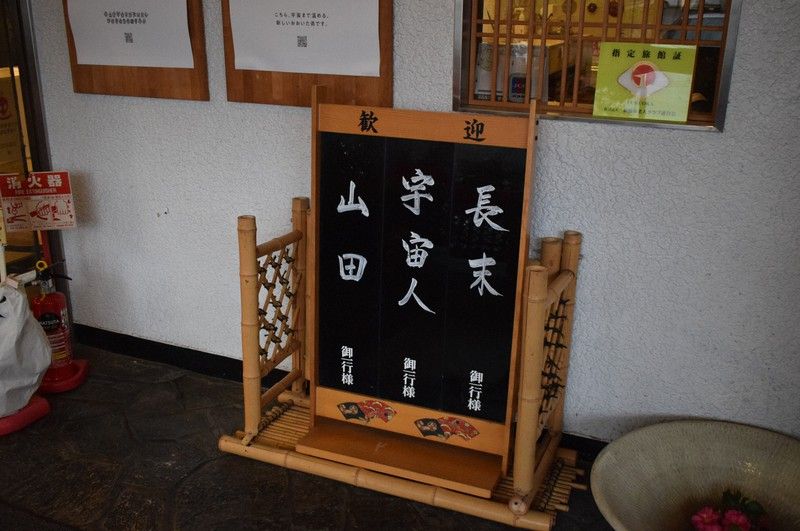 こちら、宇宙まで温める、
新しいおおいた色です。
指定旅館証
歓迎
長末 御一行様
宇宙人 御一行様
山田 御一行様
消火器
FIRE EXTINGUISHER